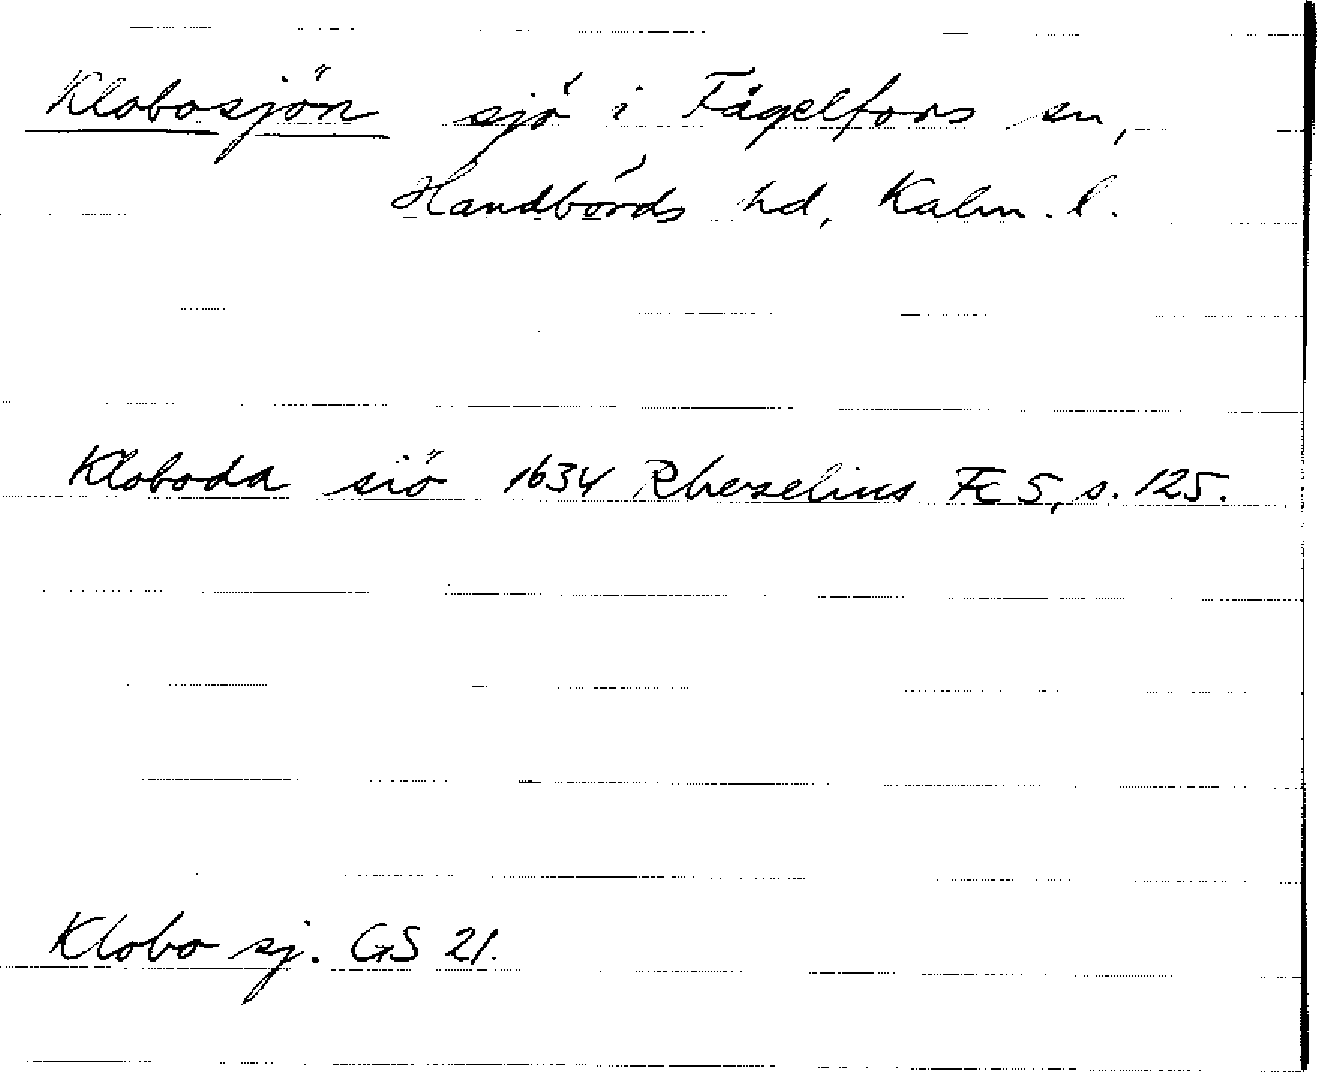 Klobosjön sjö i Fågelfors sn,
Handbörds hd, Kalm. l.
Kloboda siö 1634 Rhezelius FE 5, s. 125.
Klobo sj. GS 21.